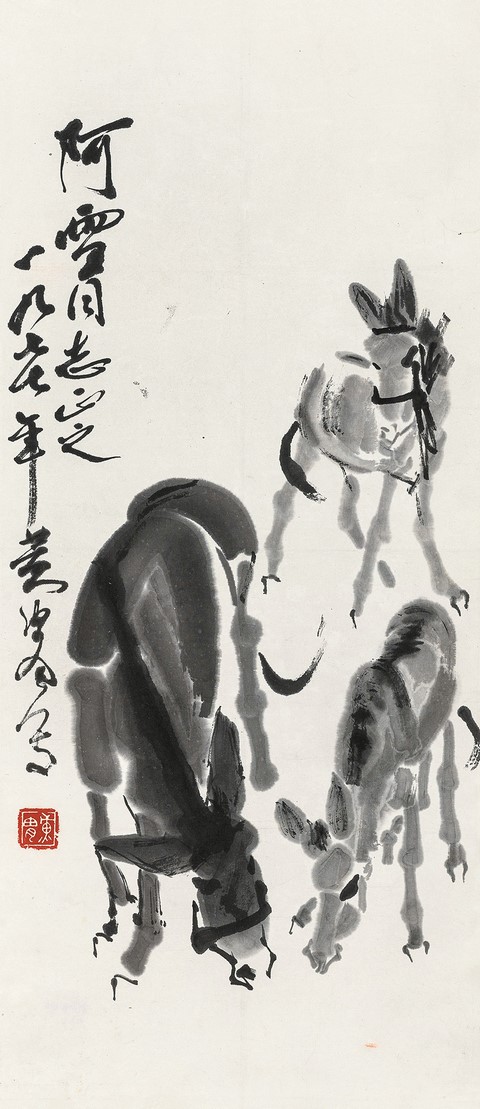 阿雪同志正之
一九七七年黄胄写
黄胄